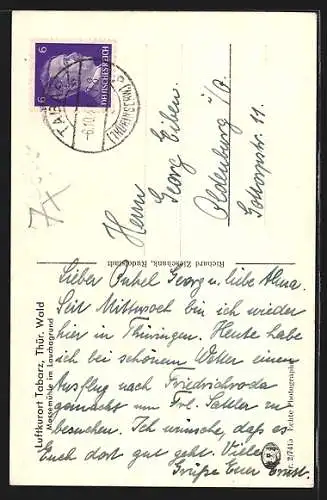 6 6
DEUTSCHES REICH
TABARZ
-6.10.4
(THÜRINGERW.)
Herrn
Georg Eiben.
Oldenburg i/O.
Gottorpstr. 11.
Richard Zieschank, Rudolstadt
Luftkurort Tabarz, Thür. Wald
Massemühle im Lauchagrund
Lieber Onkel Georg u. liebe Alma.
Seit Mittwoch bin ich wieder
hier in Thüringen. Heute habe
ich bei schönem Wetter einen
Ausflug nach Friedrichroda
gemacht um Frl. Sattler zu
besuchen. Ich wünsche, daß es
Euch dort gut geht. Viele
Grüße Euer Ernst.
Nr. 2/741a Echte Photographie